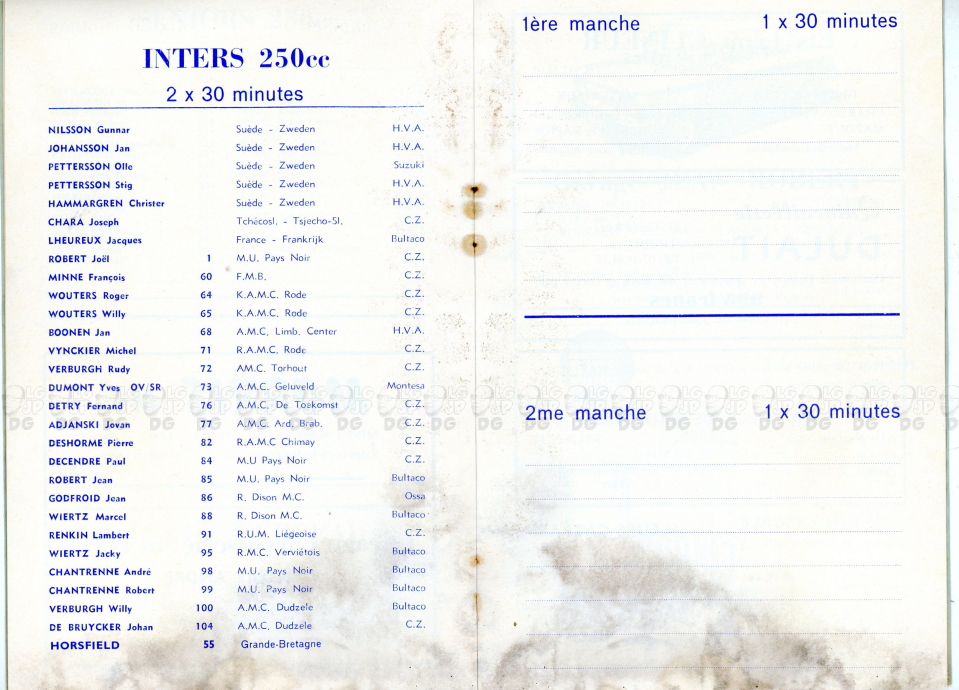 INTERS 250cc
2 x 30 minutes
NILSSON Gunnar Suède - Zweden H.V.A.
JOHANSSON Jan Suède - Zweden H.V.A.
PETTERSSON Olle Suède - Zweden Suzuki
PETTERSSON Stig Suède - Zweden H.V.A.
HAMMARGREN Christer Suède - Zweden H.V.A.
CHARA Joseph Tchécosl. - Tsjecho-Sl. C.Z.
LHEUREUX Jacques France - Frankrijk Bultaco
ROBERT Joël 1 M.U. Pays Noir C.Z.
MINNE François 60 F.M.B. C.Z.
WOUTERS Roger 64 K.A.M.C. Rode C.Z.
WOUTERS Willy 65 K.A.M.C. Rode C.Z.
BOONEN Jan 68 A.M.C. Limb. Center H.V.A.
VYNCKIER Michel 71 R.A.M.C. Rode C.Z.
VERBURGH Rudy 72 AM.C. Torhout C.Z.
DUMONT Yves OV/SR 73 A.M.C. Geluveld Montesa
DETRY Fernand 76 A.M.C. De Toekomst C.Z.
ADJANSKI Jovan 77 A.M.C. Ard. Brab. C.Z.
DESHORME Pierre 82 R.A.M.C Chimay C.Z.
DECENDRE Paul 84 M.U Pays Noir C.Z.
ROBERT Jean 85 M.U. Pays Noir Bultaco
GODFROID Jean 86 R. Dison M.C. Ossa
WIERTZ Marcel 88 R. Dison M.C. Bultaco
RENKIN Lambert 91 R.U.M. Liégeoise C.Z.
WIERTZ Jacky 95 R.M.C. Verviétois Bultaco
CHANTRENNE André 98 M.U. Pays Noir Bultaco
CHANTRENNE Robert 99 M.U. Pays Noir Bultaco
VERBURGH Willy 100 A.M.C. Dudzele Bultaco
DE BRUYCKER Johan 104 A.M.C. Dudzele C.Z.
HORSFIELD 55 Grande-Bretagne
1ère manche 1 x 30 minutes
2me manche 1 x 30 minutes